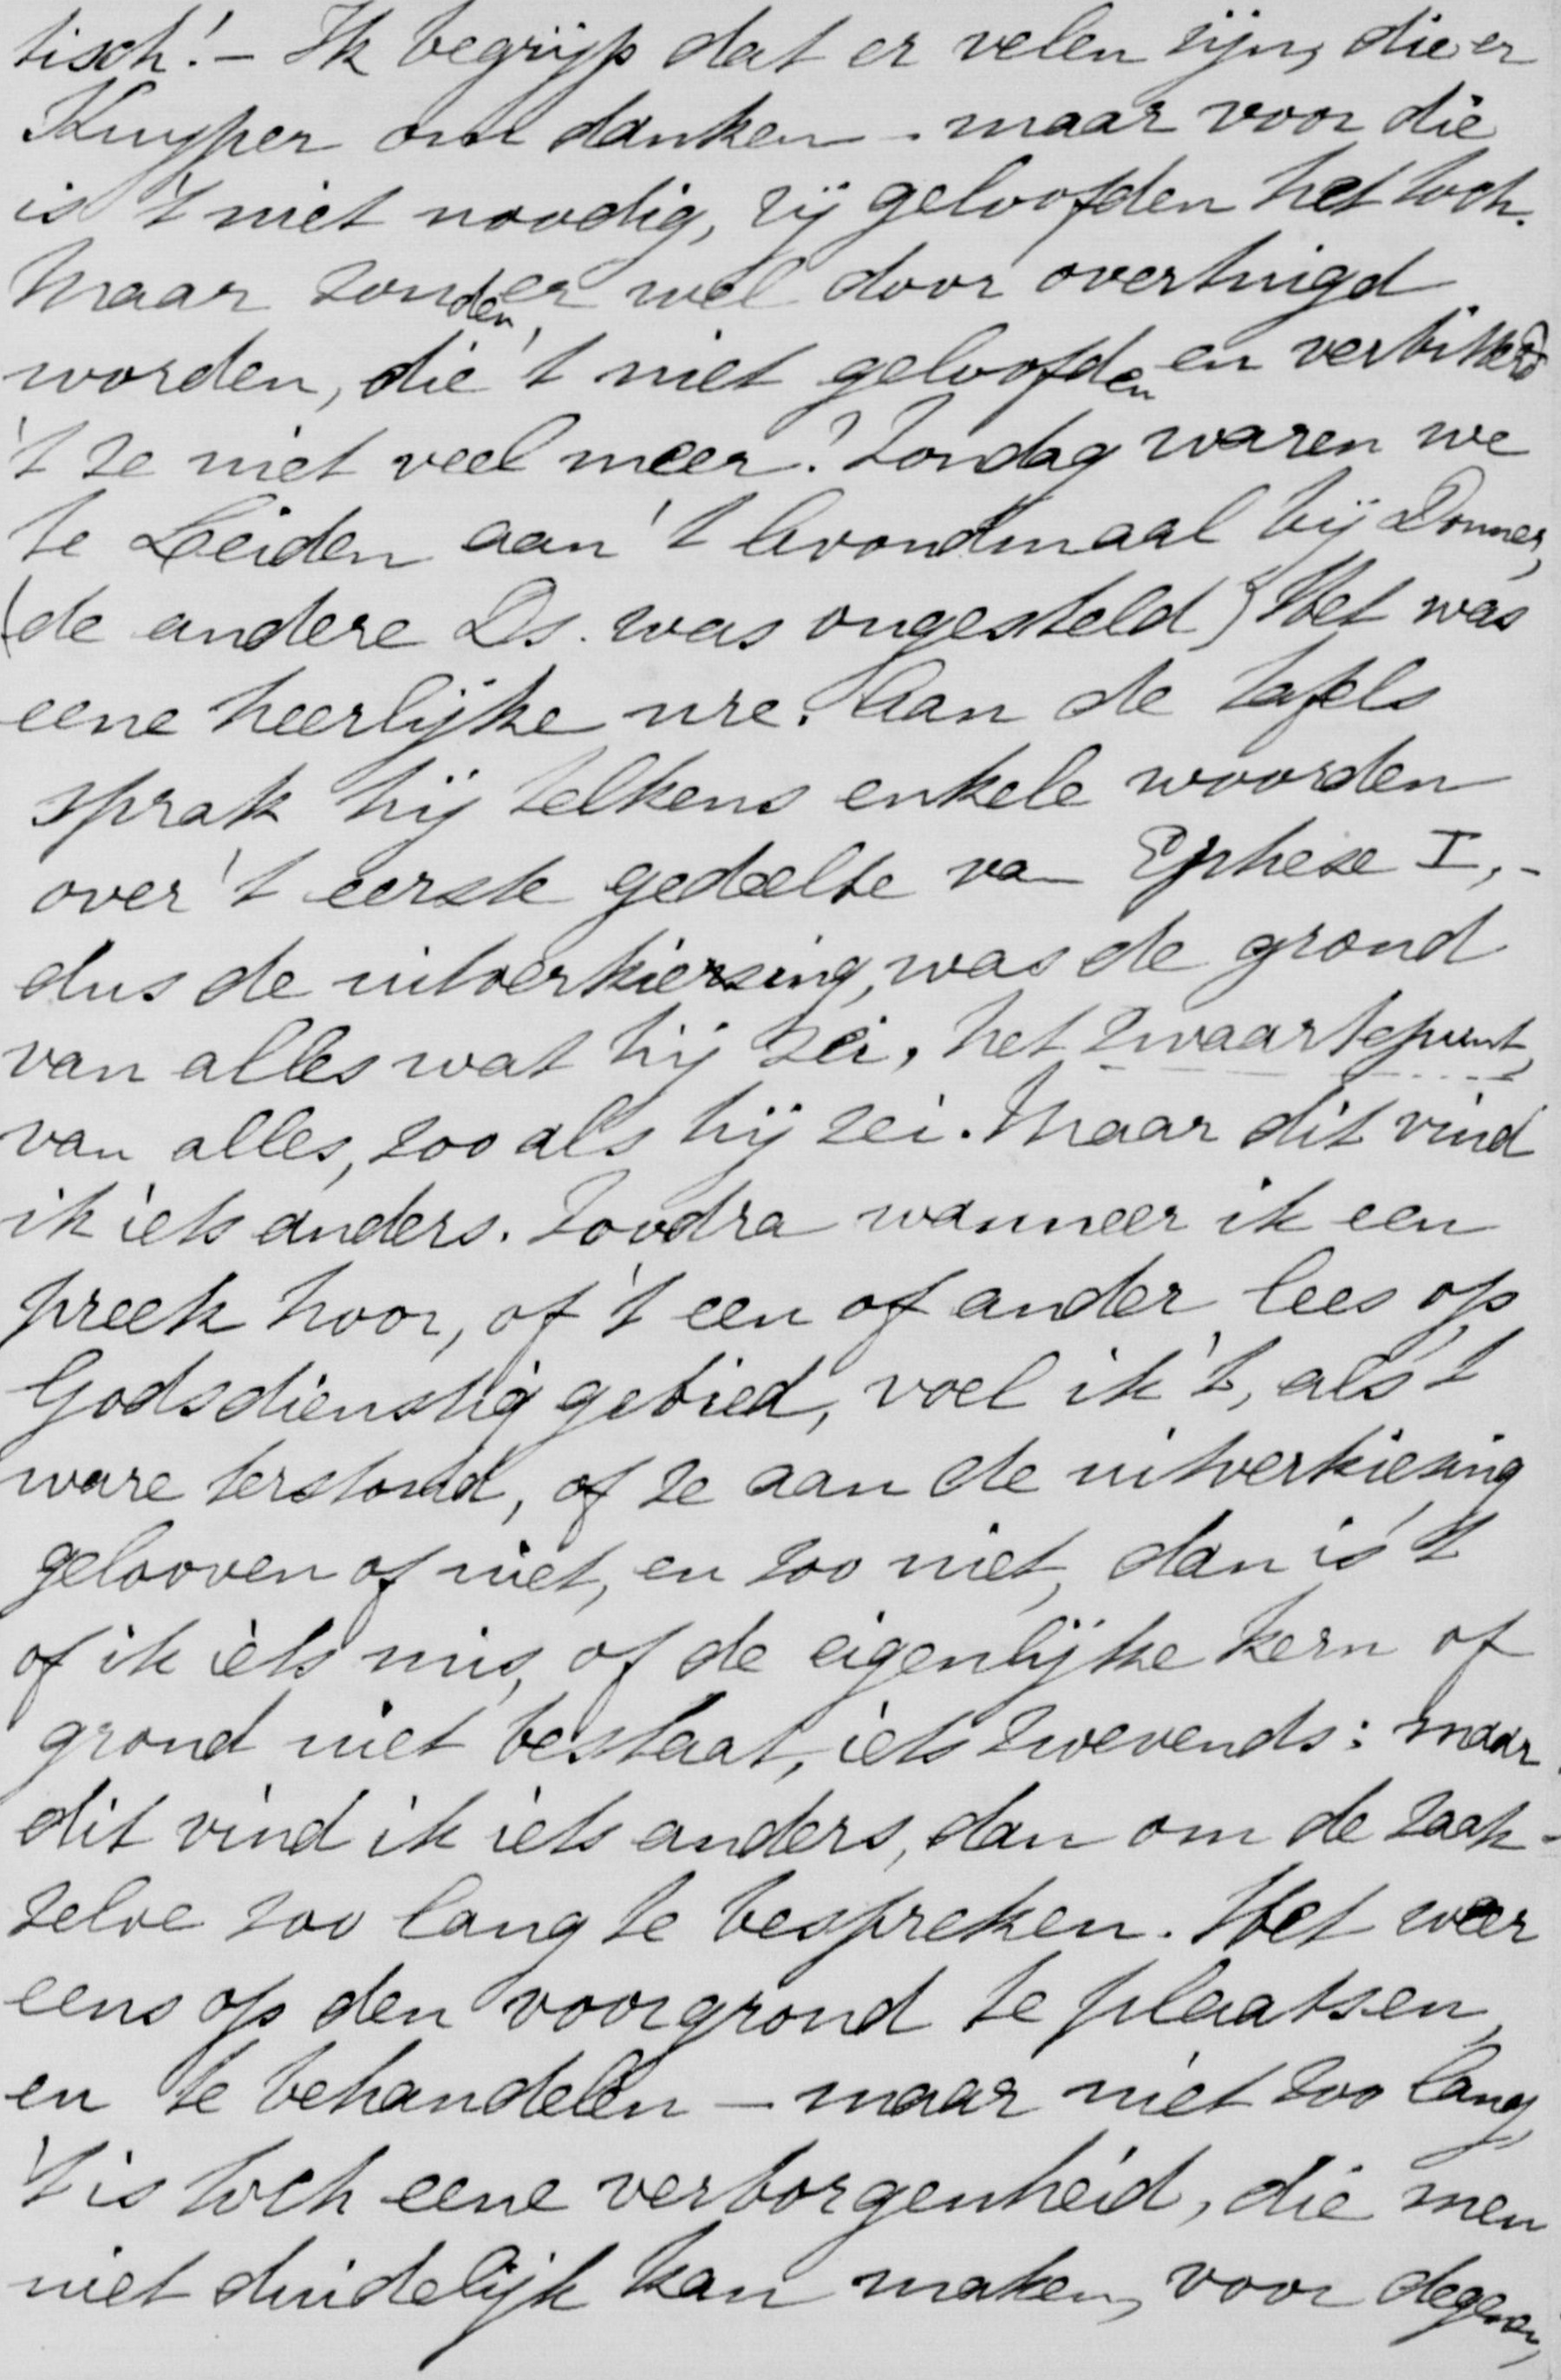 tisch! – Ik begrijp dat er velen zijn, die er
Kuyper om danken – maar voor die
is 't niet noodig, zij geloofden het toch.
Maar zouden er wel door overtuigd
worden, die 't niet geloofden en verbittert
't ze niet veel meer? Zondag waren we
te Leiden aan 't Avondmaal bij Donner,
(de andere Ds. was ongesteld) Het was
eene heerlijke ure. Aan de tafels
sprak hij telkens enkele woorden
over 't eerste gedeelte van Ephese I, –
dus de uitverkiezing, was de grond
van alles wat hij zei, het zwaartepunt
van alles, zooals hij zei. Maar dit vind
ik iets anders. Zoodra wanneer ik een
preek hoor, of 't een of ander lees op
Godsdienstig gebied, voel ik 't, als 't
ware terstond, of ze aan de uitverkiezing
gelooven of niet, en zoo niet, dan is 't
of ik iets mis, of de eigenlijke kern of
grond niet bestaat, iets zwevends: maar
dit vind ik iets anders, dan om de zaak-
zelve zoo lang te bespreken. Het weer
eens op den voorgrond te plaatsen,
en te behandelen – maar niet zoo lang,
't is toch eene verborgenheid, die men
niet duidelijk kan maken, voor degenen,